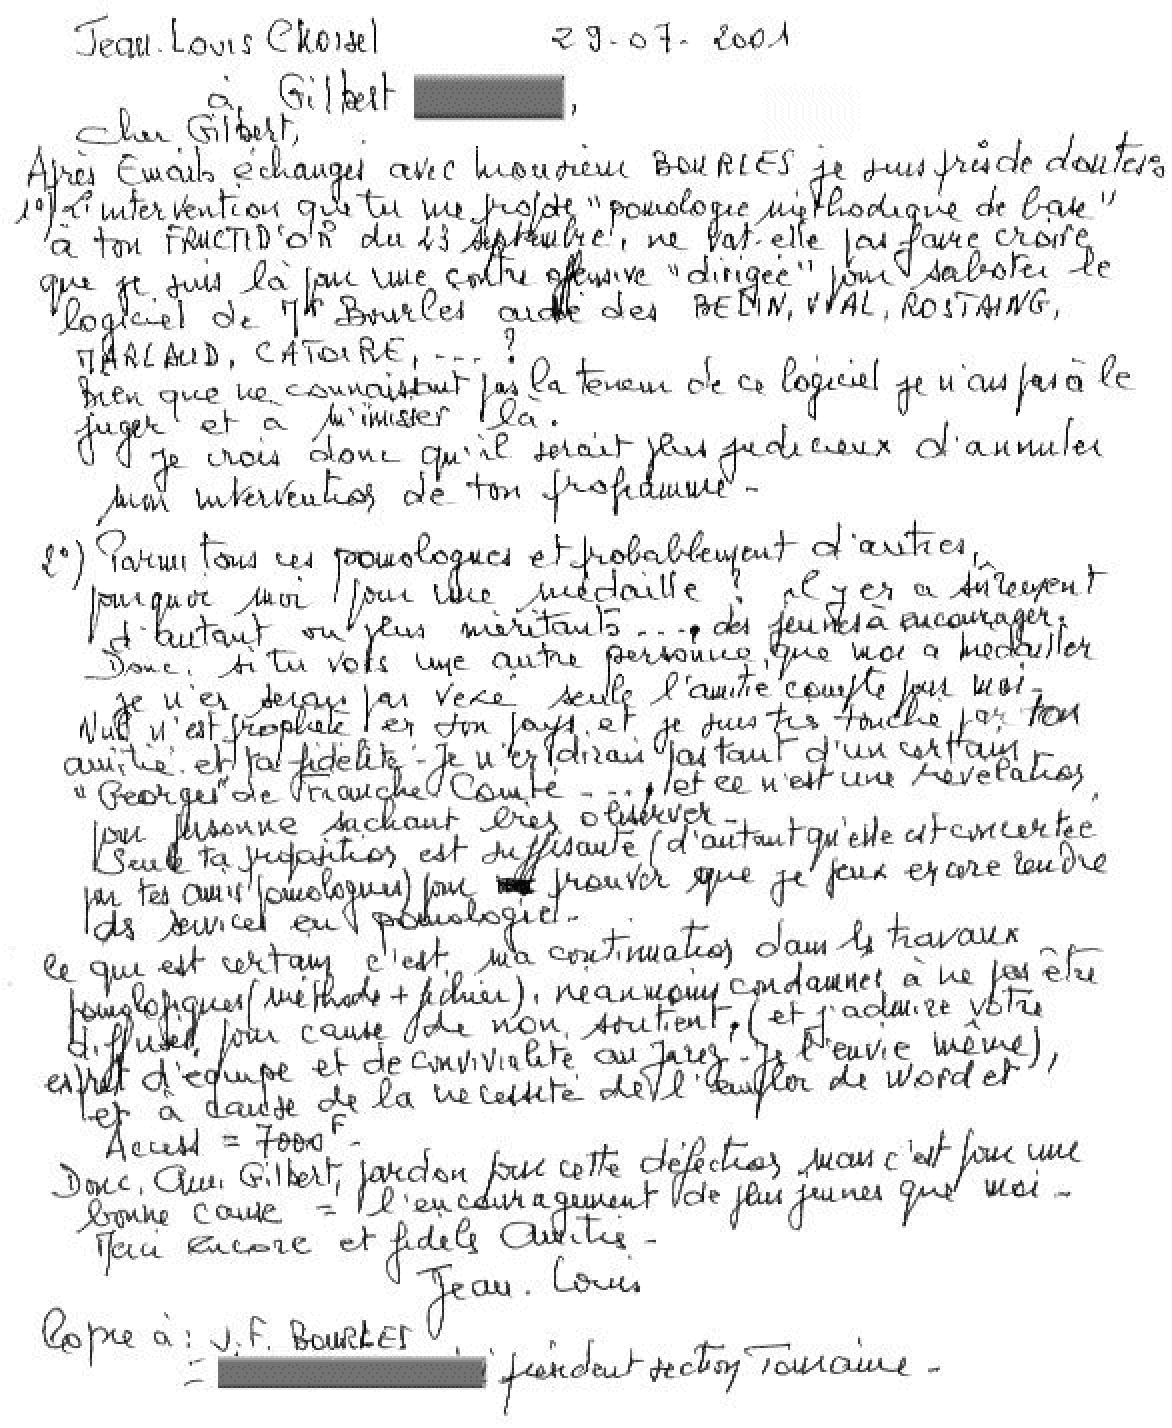 Jean-Louis Choisel 29-07-2001
à Gilbert
Cher Gilbert,
Après Emails échangés avec Monsieur BOURLES je suis pris de doutes
1°) L'intervention que tu me propose "pomologie méthodique de base"
à ton FRUCTID'OR du 23 septembre, ne vat-elle pas faire croire
que je suis là pour une contre offensive "dirigée" pour saboter le
logiciel de Mr Bourles aidé des BELIN, VIAL, ROSTAING,
MARLAUD, CATOIRE, ---- ?
Bien que ne connaissant pas la teneur de ce logiciel je n'ai pas à le
juger et à m'imisser là.
Je crois donc qu'il serait plus judicieux d'annuler
mon intervention de ton programme -
2°) Parmi tous ces pomologues et probablement d'autres,
pourquoi moi pour une médaille ? il y en a sûrement
d'autant ou plus méritants ...., des jeunes à encourager.
Donc, si tu vois une autre personne que moi a médailler
je n'en serais pas vexé seule l'amitié compte pour moi -
Nul n'est prophète en son pays et je suis très touché par ton
amitié et ta fidélité - Je n'en dirais pas tant d'un certain
"Georges" de Franche Comté ----, et ce n'est une révélation
pour personne sachant bien observer -
Seule ta proposition est suffisante (d'autant qu'elle est concertée
par tes amis pomologues) pour prouver que je peux encore rendre
des services en pomologie -
Ce qui est certain c'est ma continuation dans les travaux
pomologiques (méthode + fichier), néanmoins condamnés à ne pas être
diffusés, pour cause de non soutient, (et j'admire votre
esprit d'équipe et de convivialité au Jarez - je l'envie même),
et à cause de la nécessité de l'emploi de Word et
Access = 7000F -
Donc, Ami Gilbert, pardon pour cette défection mais c'est pour une
bonne cause = l'encouragement de plus jeunes que moi -
Merci encore et fidèles Amitiés -
Jean-Louis
Copie à : J.F. BOURLES
= président section Touraine -